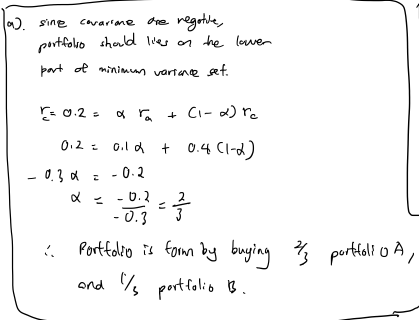 a). since covariance are negative,
portfolio should lies on the lower
part of minimum variance set.
r_c = 0.2 = α r_a + (1-α) r_c
0.2 = 0.1 α + 0.4 (1-α)
- 0.3 α = - 0.2
α = \frac{-0.2}{-0.3} = \frac{2}{3}
∴ Portfolio is form by buying 2/3 portfolio A,
and 1/3 portfolio B.